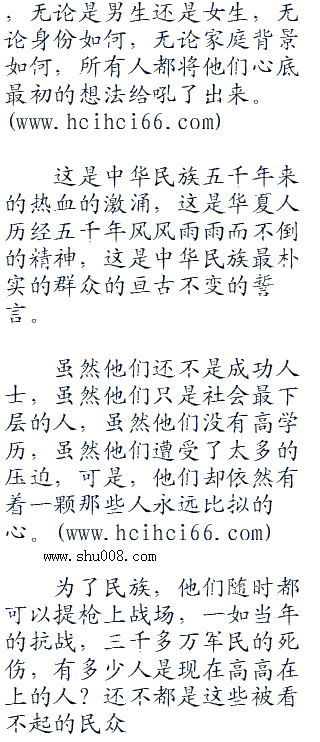 ，无论是男生还是女生，无
论身份如何，无论家庭背景
如何，所有人都将他们心底
最初的想法给吼了出来。
(www.hcihci66.com)
这是中华民族五千年来
的热血的激涌，这是华夏人
历经五千年风风雨雨而不倒
的精神，这是中华民族最朴
实的群众的亘古不变的誓
言。
虽然他们还不是成功人
士，虽然他们只是社会最下
层的人，虽然他们没有高学
历，虽然他们遭受了太多的
压迫，可是，他们却依然有
着一颗那些人永远比拟的
心。(www.hcihci66.com)
www.shu008.com
为了民族，他们随时都
可以提枪上战场，一如当年
的抗战，三千多万军民的死
伤，有多少人是现在高高在
上的人？还不都是这些被看
不起的民众